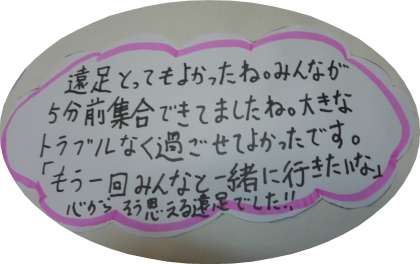 遠足とってもよかったね。みんなが
5分前集合できてましたね。大きな
トラブルなく過ごせてよかったです。
「もう一回みんなと一緒に行きたいな」
心から そう思える遠足でした!!